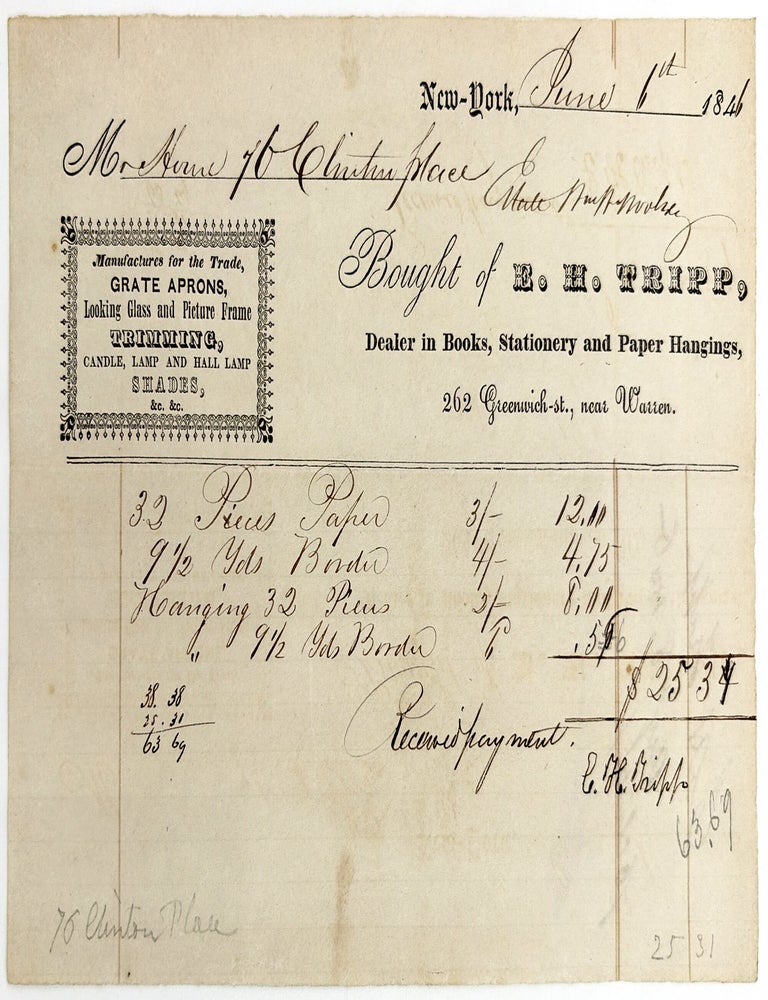 New-York, June 6th 1846
Mr Howe 76 Clinton place
Bought of E. H. TRIPP,
Dealer in Books, Stationery and Paper Hangings,
262 Greenwich-st., near Warren.
Manufactures for the Trade,
GRATE APRONS,
Looking Glass and Picture Frame
TRIMMING,
CANDLE, LAMP AND HALL LAMP
SHADES,
&c. &c.
32 Pieces Paper 3/- 12.00
9 1/2 Yds Border 4/- 4.75
Hanging 32 Pieces 2/- 8.00
" 9 1/2 Yds Border 6
$ 25 31
38. 38
25. 31
63 69
Received payment.
E. H. Tripp
63.69
76 Clinton Place
25 31